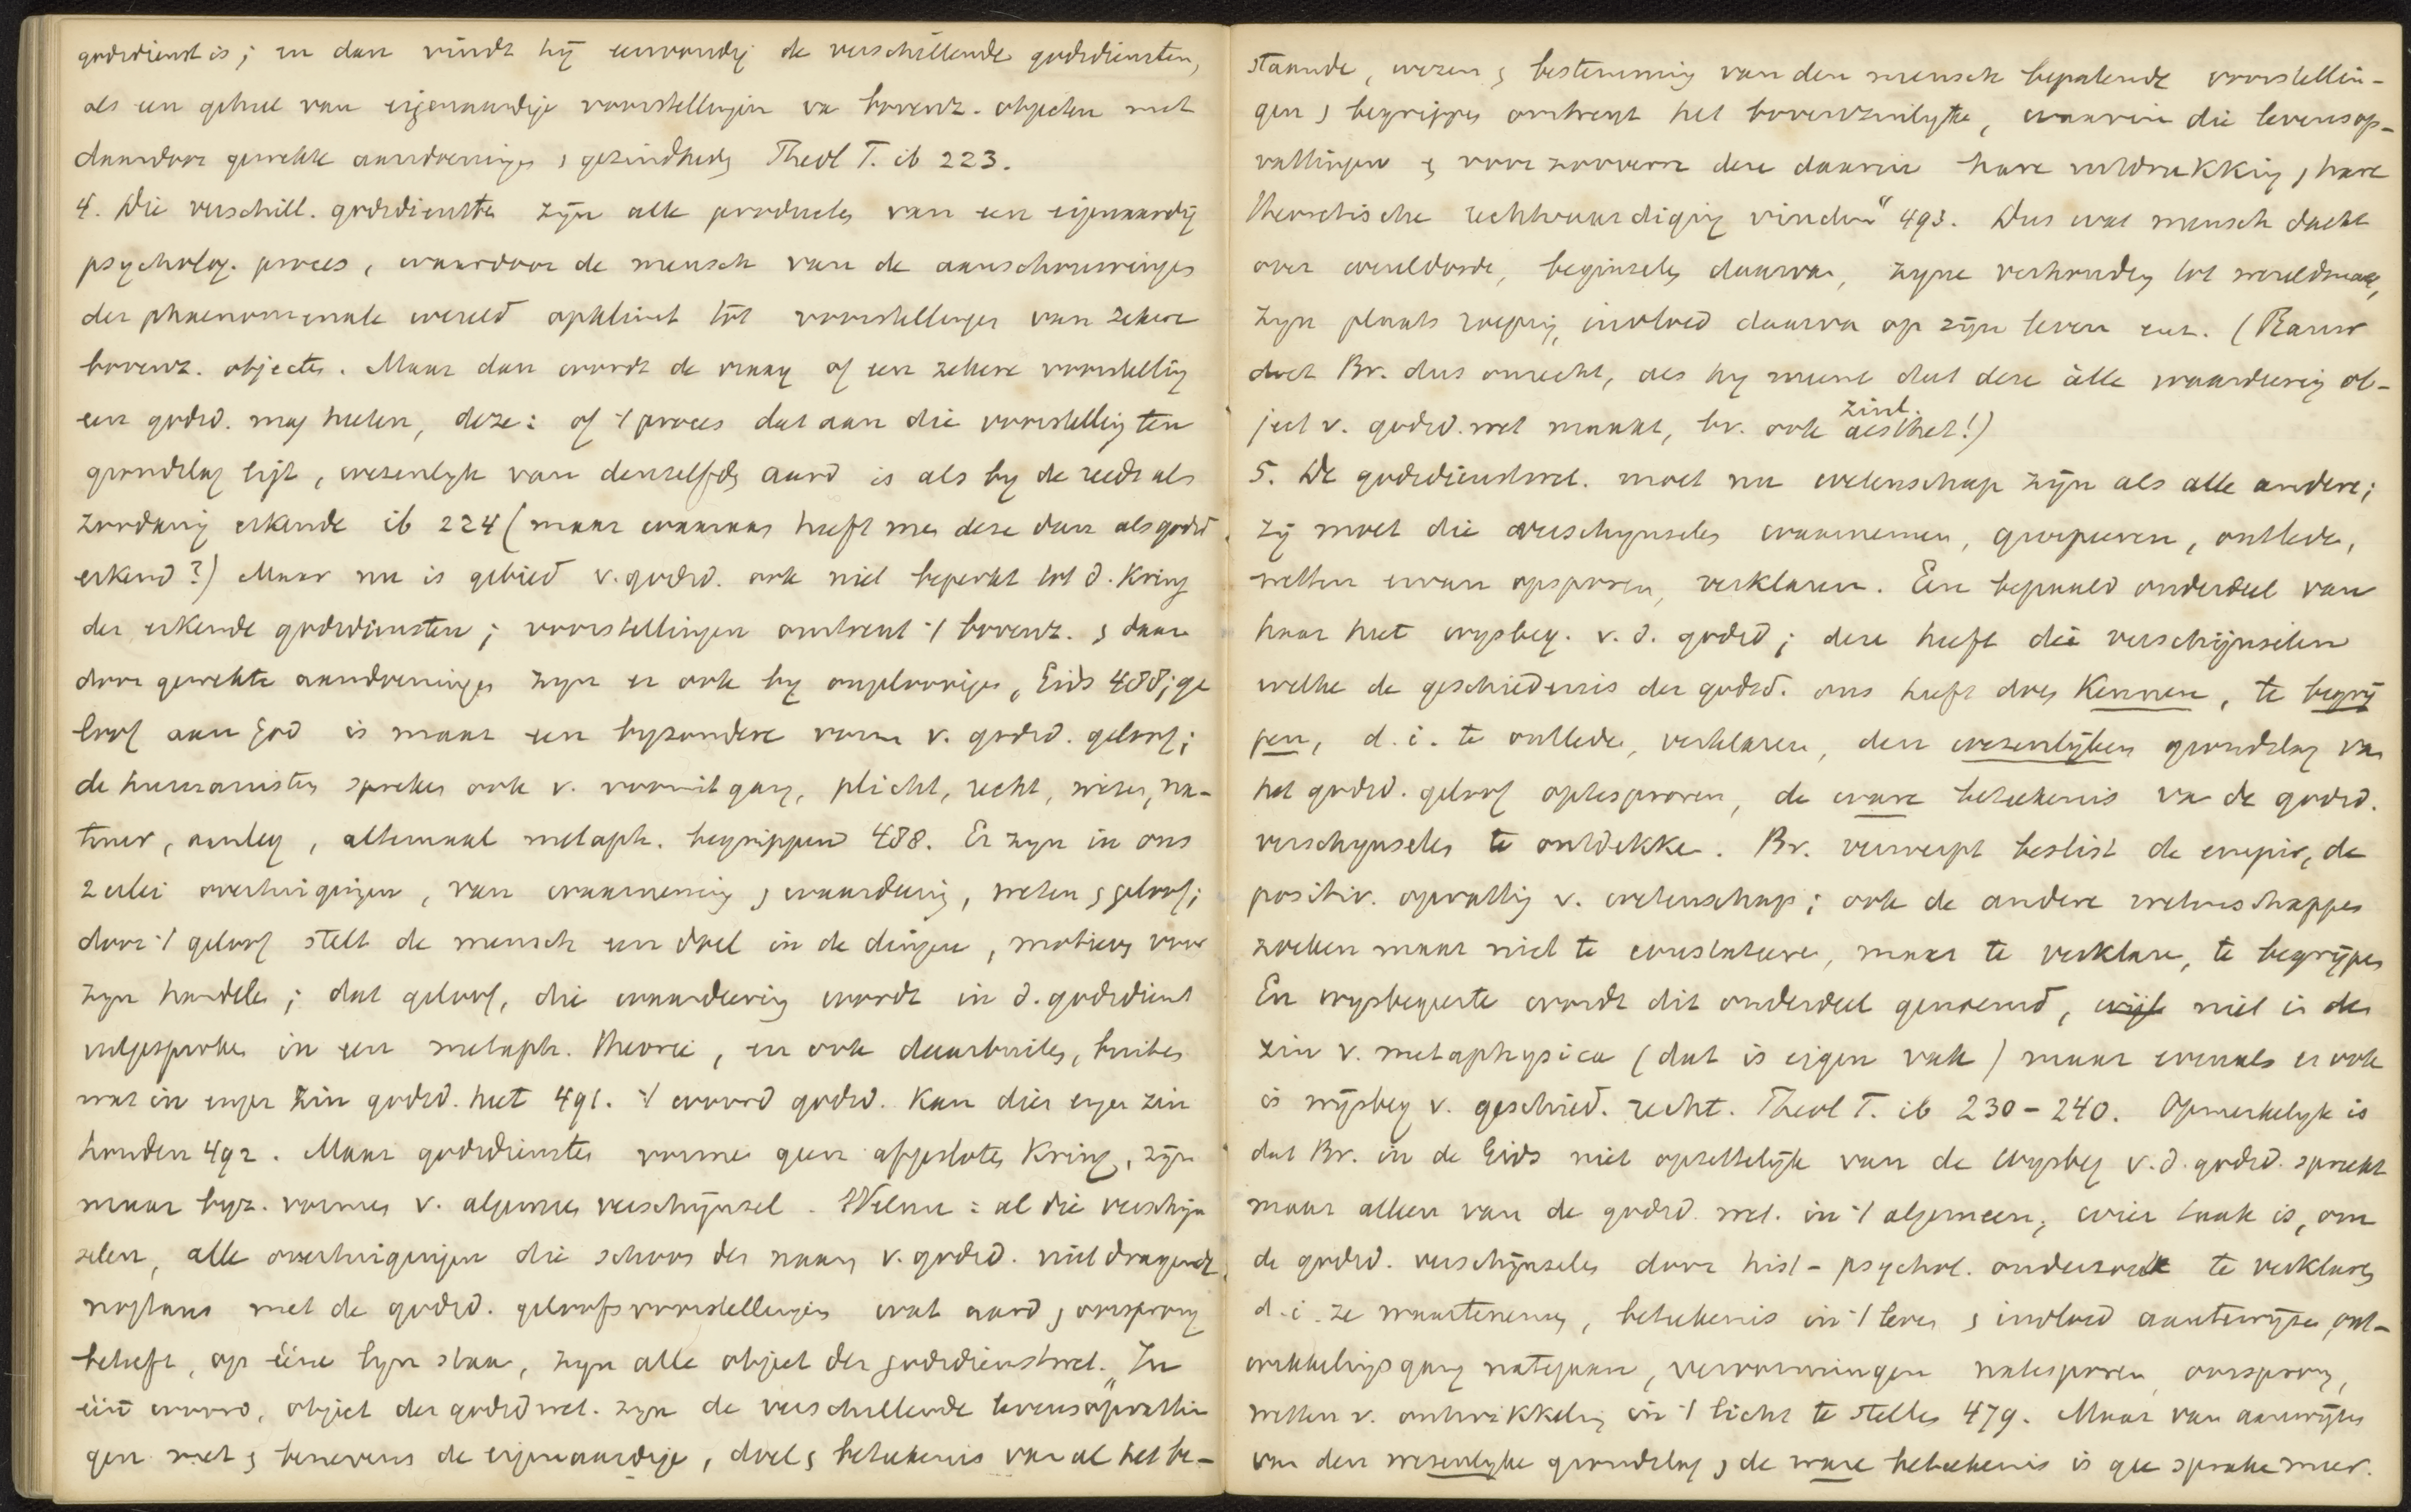 godsdienst is; en dan vindt hij eenvoudig de verschillende godsdiensten,
als een geheel van eigenaardige voorstellingen va bovenz. objecten met
daardoor gewekte aandoeninges , gezindheds Theol T. ib 223.
4. Die verschill. godsdienstes zijn alle productes van een eigenaardig
psycholog. proces, waardoor de mensch van de aanschouwinges
der phaenomenale wereld opklimt tot voorstellinges van zekere
bovenz. objectes. Maar dan wordt de vraag of een zekere voorstelling
een godsd. mag heeten, deze: of 't proces dat aan die voorstelling ten
grondslag ligt, wezenlijk van denzelfds aard is als by de reeds als
zoodanig erkende ib 224 (maar waaraas heeft mes deze dan als godsd
erkend?) Maar nu is gebied v. godsd. ook niet beperkt tot d. Kring
der erkende godsdiensten; voorstellingen omtrent 't bovenz. , daar
door gewekte aandoeninges zijn er ook by ongeloovigen, Gids 488; ge
loof aan God is maar een byzondere vorm v. godsd. geloof;
de humanistes spreken ook v. vooruitgang, plicht, recht, wezen, na-
tuur, aanleg, altemaal metaph. begrippen 488. Er zyn in ons
2 erlei overtuigingen, van waarneming , waardeering, weten , geloof;
door 't geloof stelt de mensch een doel in de dingen, motieves voor
zyn handeles; dat geloof, die waardeering wordt in d. godsdienst
uitgesprokes in een metaph. theorie, en ook daarbuites, buites
wat in enger zin godsd. heet 491. 't woord godsd. kan dies enges zin
houden 492. Maar godsdienstes vormes geen afgeslotes Kring, zijn
maar byz. vormes v. algemees verschijnsel. Welnu: al die verschijn
selen, alle overtuigingen die schoon des naam v. godsd. niet dragende
nogtans met de godsd. geloofsvoorstellinges wat aard , oorsprong
betreft, op ééne lyn staan, zyn alle object der godsdienstwet. „In
één woord, object der godsdwet. zyn de verschillende levensopvattin
gen met , benevens de eigenaardige, doel , beteekenis van al het be-
staande, wezen , bestemming van den mensch bepalende voorstellin-
gen , begrippes omtrent het bovenzinlijke, waarin die levensop-
vattingen , voor zooverre deze daarin hare uitdrukking , hare
theoretische rechtvaardiging vinden" 493. Dus wat mensch dacht
over wereldorde, beginseles daarvan, zyne verhouding tot wereldmacht,
zyn plaats roeping, invloed daarva op zijn leven enz. (Rauw
doet Br. dus onrecht, als hy meent dat deze àlle waardeering ob-
ject v. godsd. wet maakt, bv. ook zinl. aesthet!)
5. De godsdienstwet. moet nu wetenschap zijn als alle andere;
zij moet die verschynseles waarnemen, groepeeren, ontlede,
wetten ervan opsporen, verklaren. Een bepaald onderdeel van
haar heet wysbeg. v. d. godsd; deze heeft die verschijnselen
welke de geschiedenis der godsd. ons heeft does Kennen, te begrij
pen, d. i. te ontlede, verklaren, den wezenlijken grondslag va
het godsd. geloof optesporen, de ware beteekenis va de godsd.
verschynseles te ontdekke. Br. verwerpt beslist de empir., de
positiv. opvatting v. wetenschap; ook de andere wetenschappes
zoeken maar niet te constateere, maar te verklare, te begrijpes
En wysbegeerte wordt dit onderdeel genoemd, niet in des
zin v. metaphysica (dat is eigen vak) maar evenals er ook
is wijsbeg v. geschied. recht. Theol T. ib 230-240. Opmerkelijk is
dat Br. in de Gids niet opzettelijk van de Wysbeg v. d. godsd. spreekt
maar alleen van de godsd. wet. in 't algemeen, wier taak is, om
de godsd. verschijnseles door hist-psychol. onderzoek te verklares
d. i. ze waartenemes, beteekenis in 't leves , invloed aantewijzes, ont-
wikkelingsgang nategaan, vervormingen natesporen, oorsprong,
wetten v. ontwikkeling in 't licht te stelles 479. Maar van aanwijzes
van den wezenlyke grondslag , de ware beteekenis is gee sprake meer.